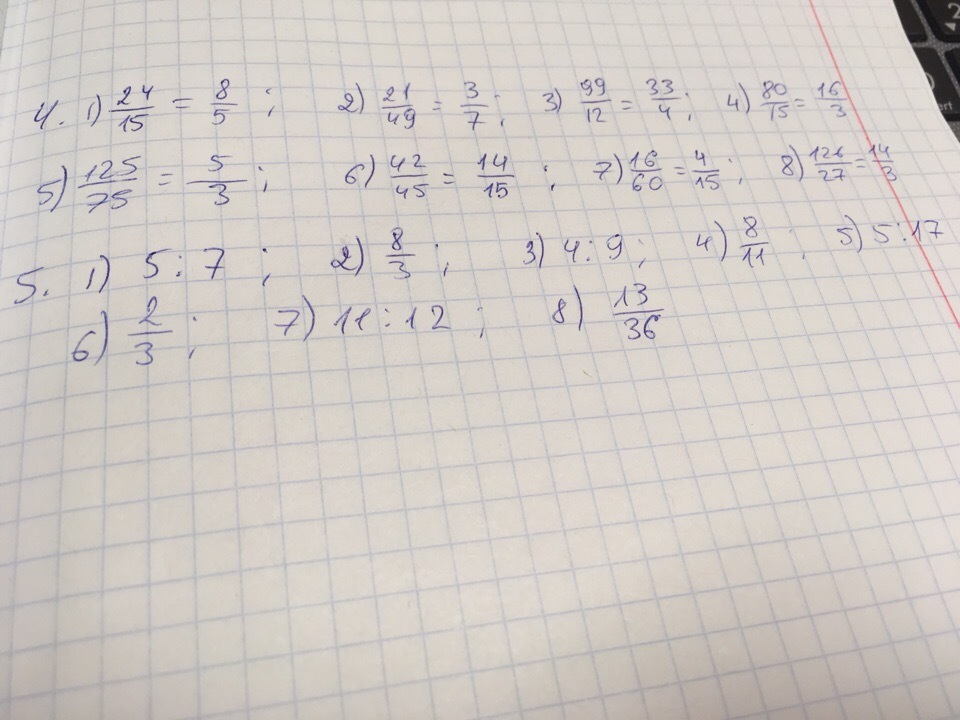 4. 1) 24/15 = 8/5 ; 2) 21/49 = 3/7 ; 3) 99/12 = 33/4 ; 4) 80/15 = 16/3
5) 125/75 = 5/3 ; 6) 42/45 = 14/15 ; 7) 16/60 = 4/15 ; 8) 126/27 = 14/3
5. 1) 5 : 7 ; 2) 8/3 ; 3) 4 : 9 ; 4) 8/11 ; 5) 5 : 17
6) 2/3 ; 7) 11 : 12 ; 8) 13/36